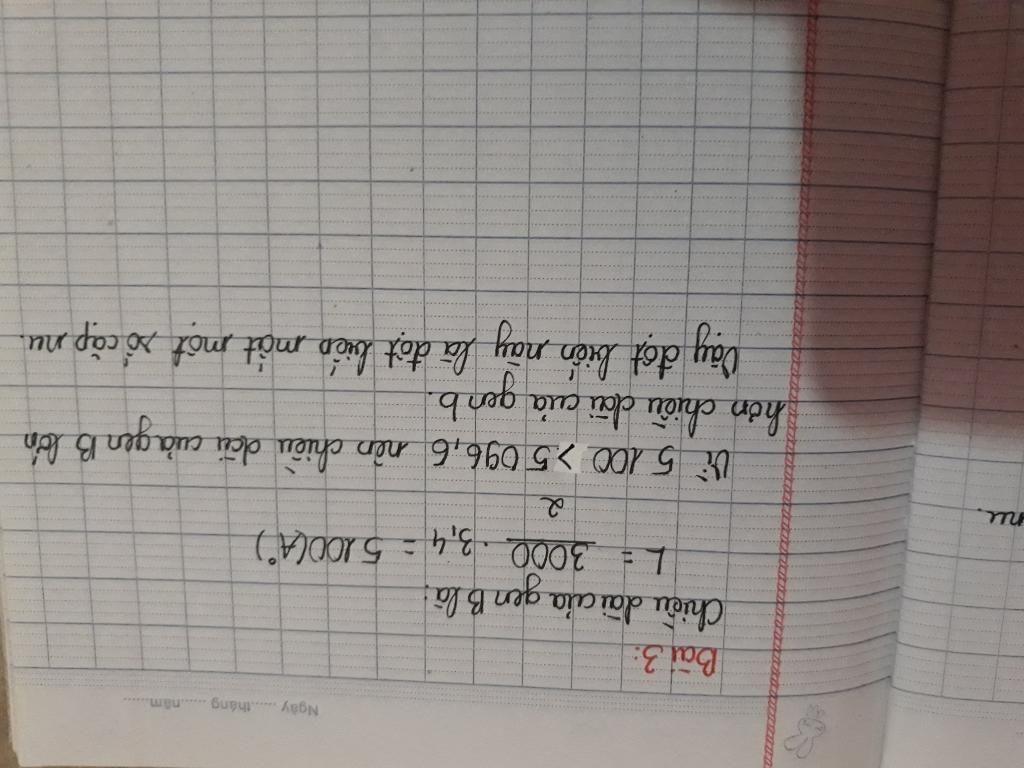 Ngày ......tháng ......năm......
Bài 3:
Chiều dài của gen B là:
L = 3000/2 . 3,4 = 5100 (A°)
Vì 5 100 > 5 096,6 nên chiều dài của gen B lớn
hơn chiều dài của gen b.
Vậy đột biến này là đột biến mất một số cặp nu.
nu.